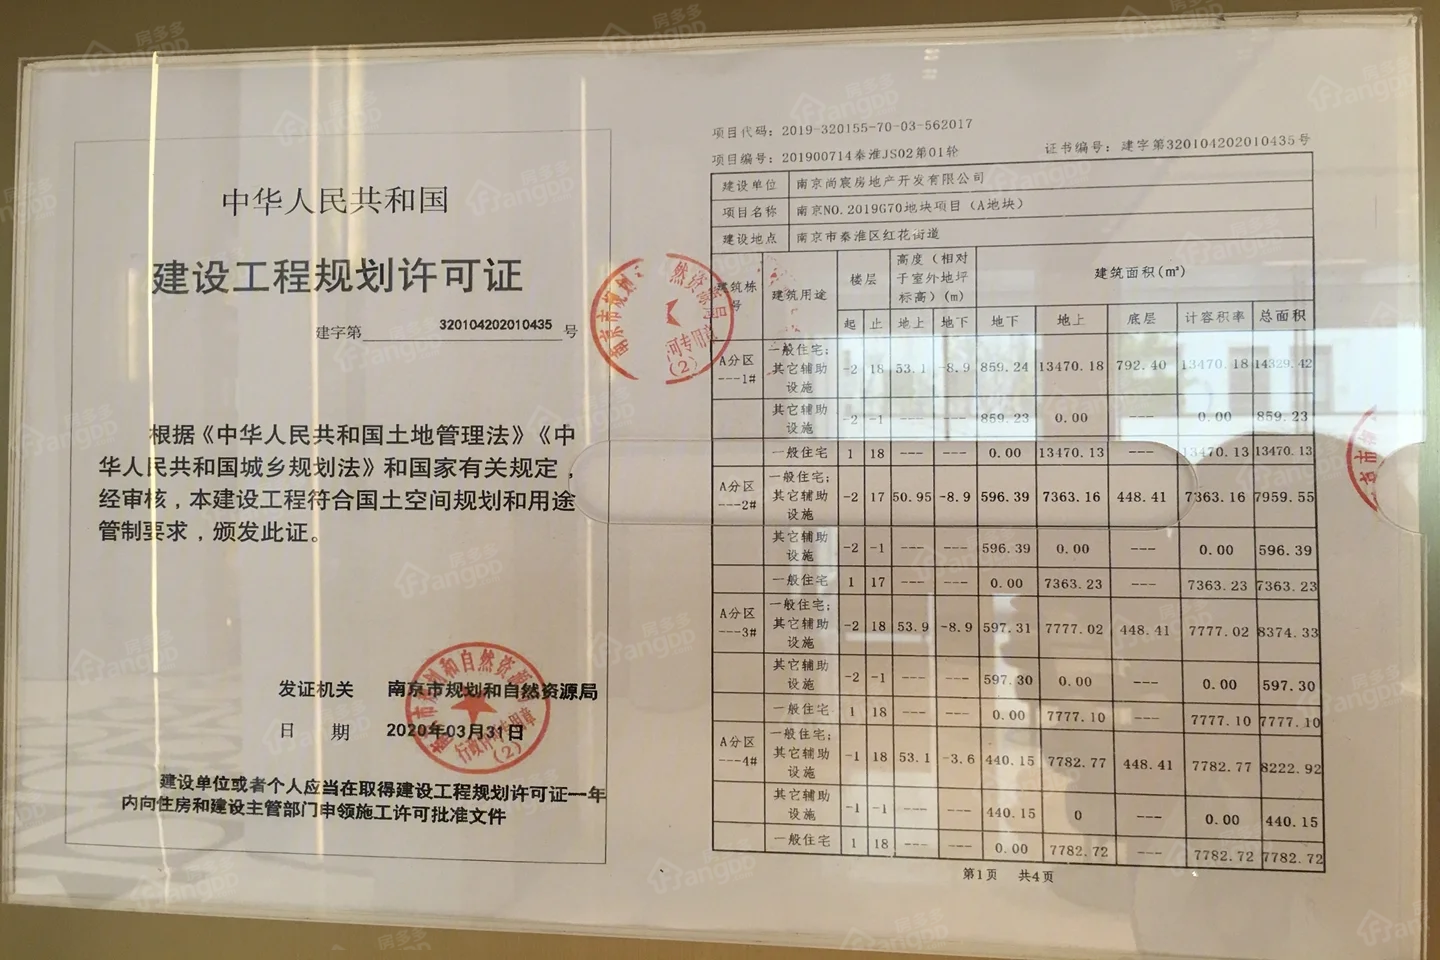 中华人民共和国
建设工程规划许可证
建字第 320104202010435 号
根据《中华人民共和国土地管理法》《中
华人民共和国城乡规划法》和国家有关规定，
经审核，本建设工程符合国土空间规划和用途
管制要求，颁发此证。
发证机关 南京市规划和自然资源局
日 期 2020年03月31日
建设单位或者个人应当在取得建设工程规划许可证一年
内向住房和建设主管部门申领施工许可批准文件
项目代码：2019-320155-70-03-562017
项目编号：201900714秦淮JS02第01轮 证书编号：建字第320104202010435号
建设单位 南京尚宸房地产开发有限公司
项目名称 南京NO.2019G70地块项目（A地块）
建设地点 南京市秦淮区红花街道
建筑栋号 建筑用途 楼层 高度（相对于室外地坪标高）(m) 建筑面积(㎡)
起 止 地上 地下 地下 地上 底层 计容积率 总面积
A分区---1# 一般住宅;其它辅助设施 -2 18 53.1 -8.9 859.24 13470.18 792.40 13470.18 14329.42
其它辅助设施 -2 -1 --- --- 859.23 0.00 --- 0.00 859.23
一般住宅 1 18 --- --- 0.00 13470.13 --- 13470.13 13470.13
A分区---2# 一般住宅;其它辅助设施 -2 17 50.95 -8.9 596.39 7363.16 448.41 7363.16 7959.55
其它辅助设施 -2 -1 --- --- 596.39 0.00 --- 0.00 596.39
一般住宅 1 17 --- --- 0.00 7363.23 --- 7363.23 7363.23
A分区---3# 一般住宅;其它辅助设施 -2 18 53.9 -8.9 597.31 7777.02 448.41 7777.02 8374.33
其它辅助设施 -2 -1 --- --- 597.30 0.00 --- 0.00 597.30
一般住宅 1 18 --- --- 0.00 7777.10 --- 7777.10 7777.10
A分区---4# 一般住宅;其它辅助设施 -1 18 53.1 -3.6 440.15 7782.77 448.41 7782.77 8222.92
其它辅助设施 -1 -1 --- --- 440.15 0 --- 0.00 440.15
一般住宅 1 18 --- --- 0.00 7782.72 --- 7782.72 7782.72
第1页 共4页
房多多
Fangdd